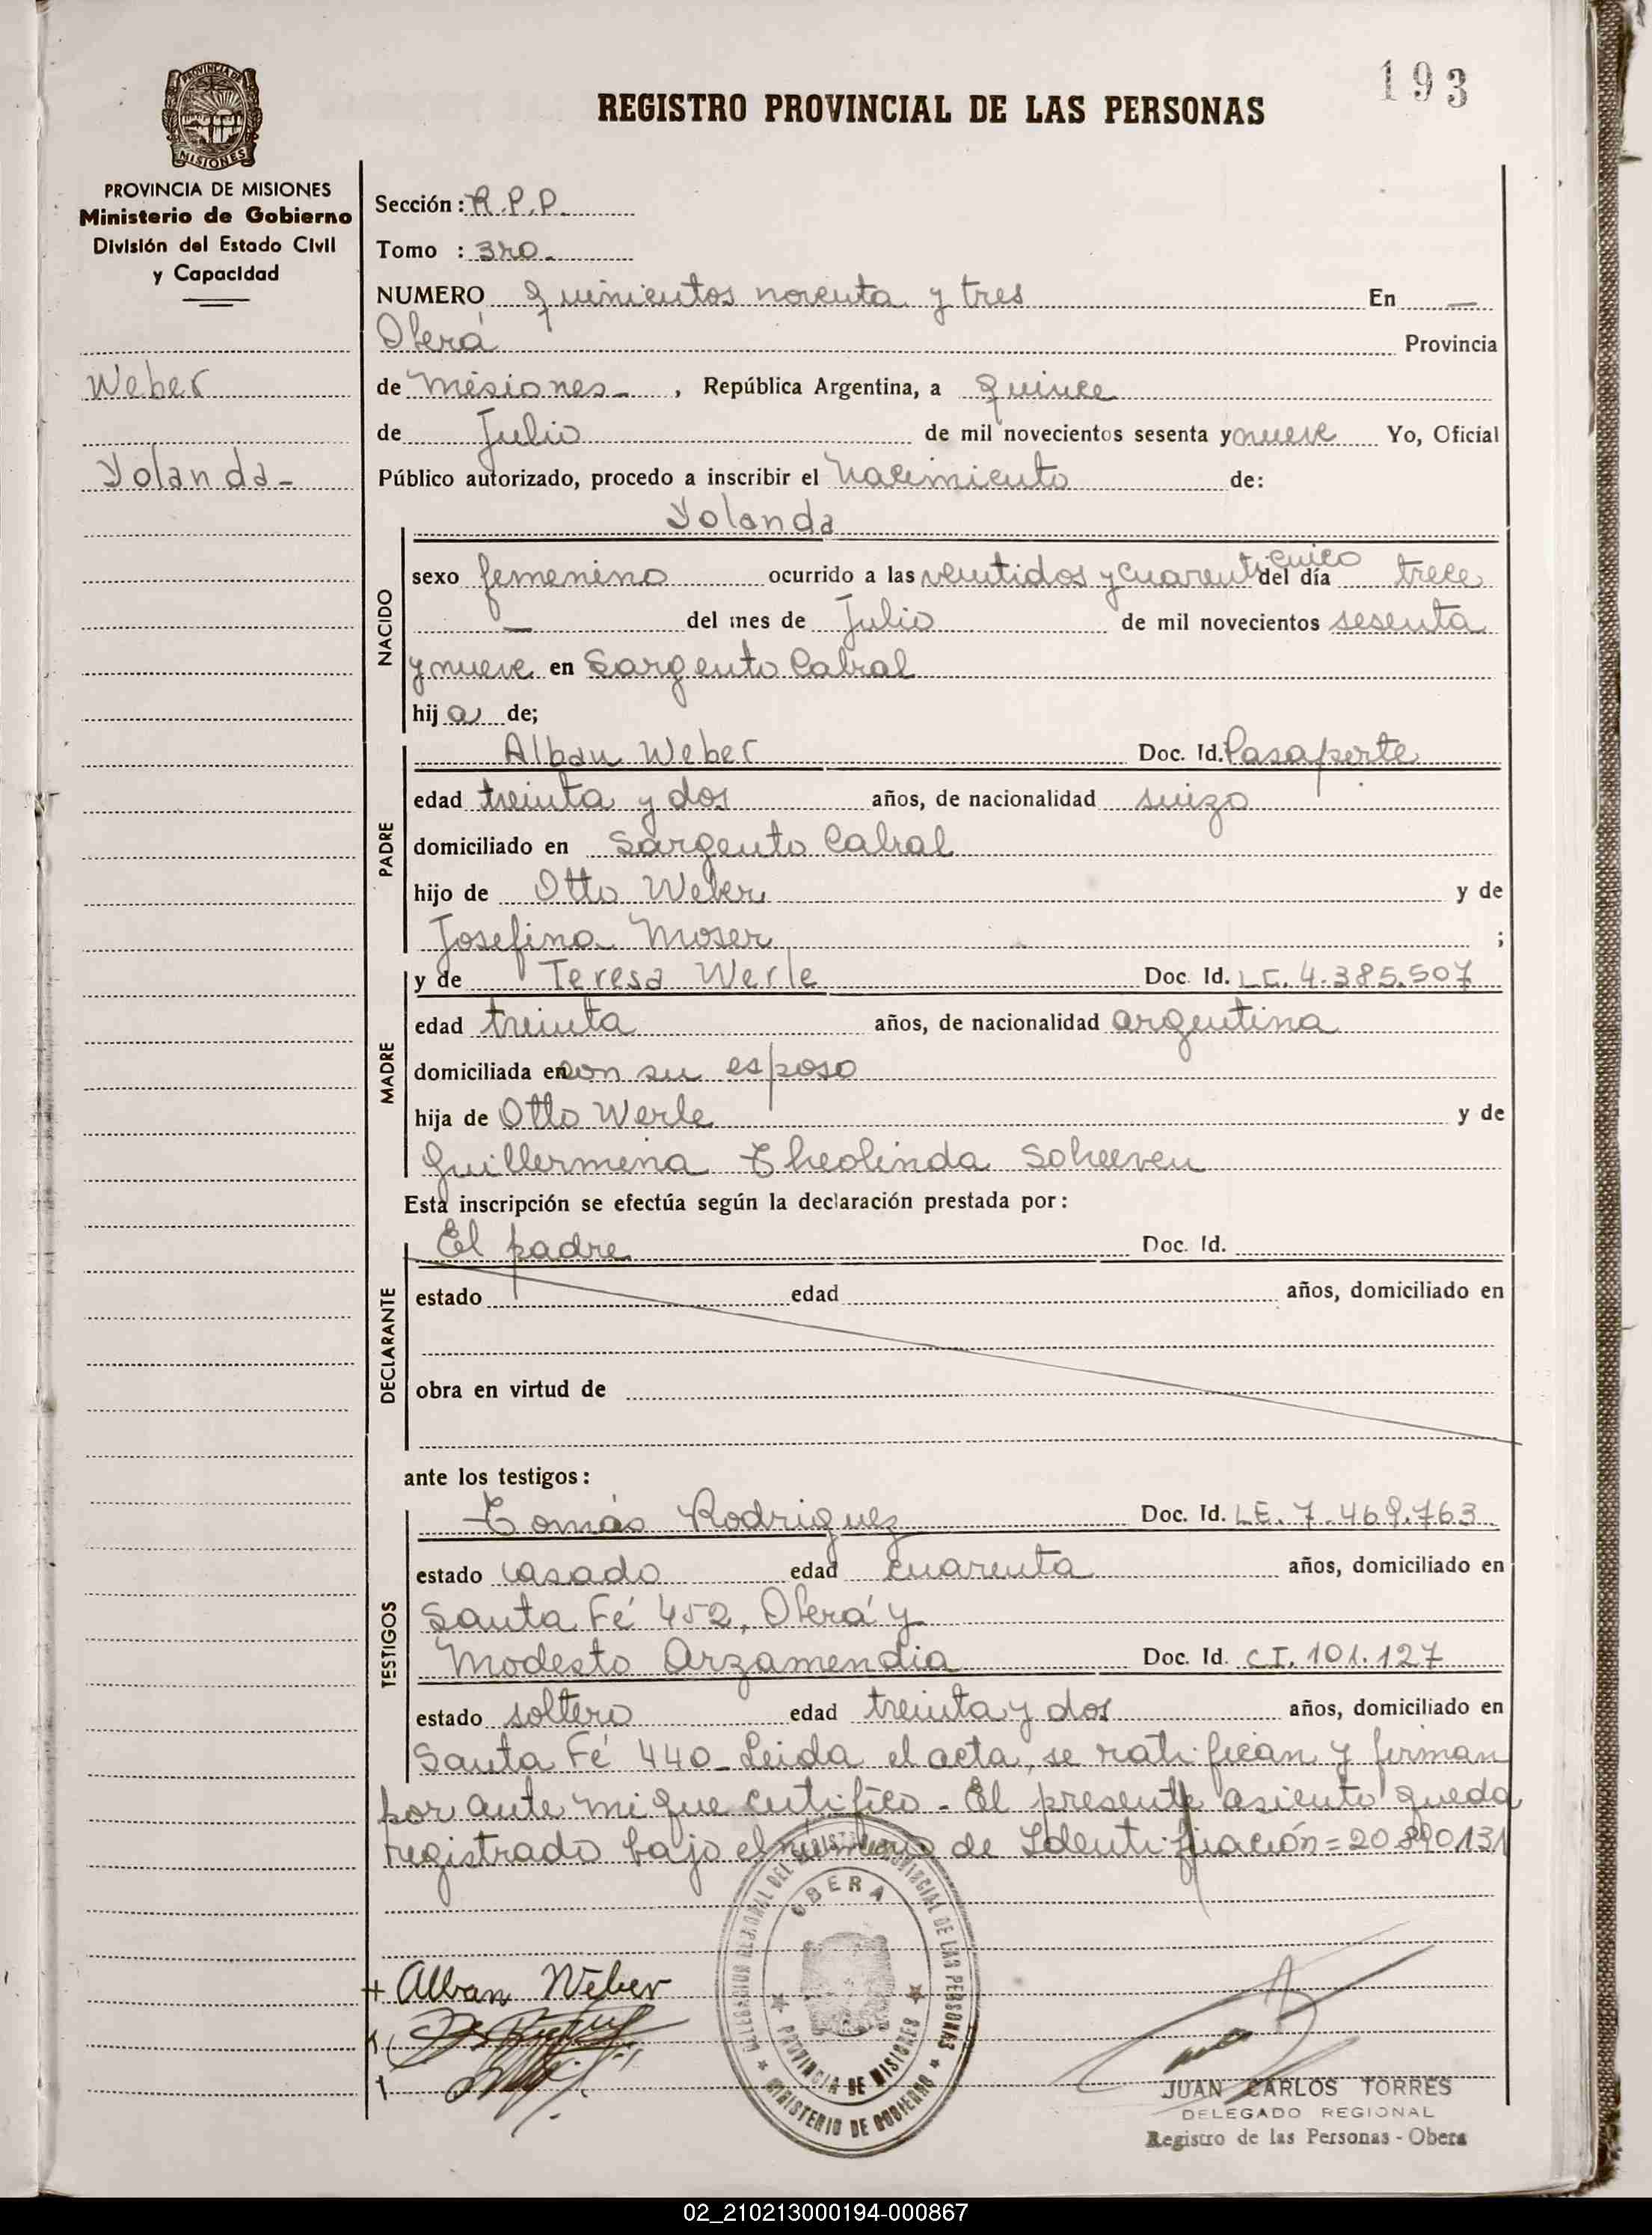 193
REGISTRO PROVINCIAL DE LAS PERSONAS
PROVINCIA DE MISIONES
Ministerio de Gobierno
División del Estado Civil
y Capacidad
Weber
Yolanda-
Sección: R.P.P.
Tomo : 3ro.
NUMERO quinientos noventa y tres En —
Oberá Provincia
de Misiones- , República Argentina, a quince
de Julio de mil novecientos sesenta y nueve Yo, Oficial
Público autorizado, procedo a inscribir el Nacimiento de:
Yolanda
NACIDO
sexo femenino ocurrido a las veintidos y cuarenticinco del día trece
— del mes de Julio de mil novecientos sesenta
y nueve en Sargento Cabral
hija de;
PADRE
Alban Weber Doc. Id. Pasaporte
edad treinta y dos años, de nacionalidad suizo
domiciliado en Sargento Cabral
hijo de Otto Weber y de
Josefina Moser ;
MADRE
y de Teresa Werle Doc. Id. LC. 4.385.507
edad treinta años, de nacionalidad argentina
domiciliada en con su esposo
hija de Otto Werle y de
Guillermina Theolinda
Esta inscripción se efectúa según la declaración prestada por:
DECLARANTE
El padre Doc. Id.
estado edad años, domiciliado en
obra en virtud de
ante los testigos:
TESTIGOS
Tomás Rodriguez Doc. Id. LE. 7.469.763
estado casado edad cuarenta años, domiciliado en
Santa Fé 452, Oberá y
Modesto Arzamendia Doc. Id. CI. 101.127
estado soltero edad treinta y dos años, domiciliado en
Santa Fé 440_ Leida el acta, se ratifican y firman
por ante mi que certifico - El presente asiento queda
registrado bajo el número de Identificación = 20.890.131
DELEGACION REGIONAL DEL REGISTRO PROVINCIAL DE LAS PERSONAS
OBERA
PROVINCIA DE MISIONES
MINISTERIO DE GOBIERNO
Alban Weber
JUAN CARLOS TORRES
DELEGADO REGIONAL
Registro de las Personas - Obera
02_210213000194-000867